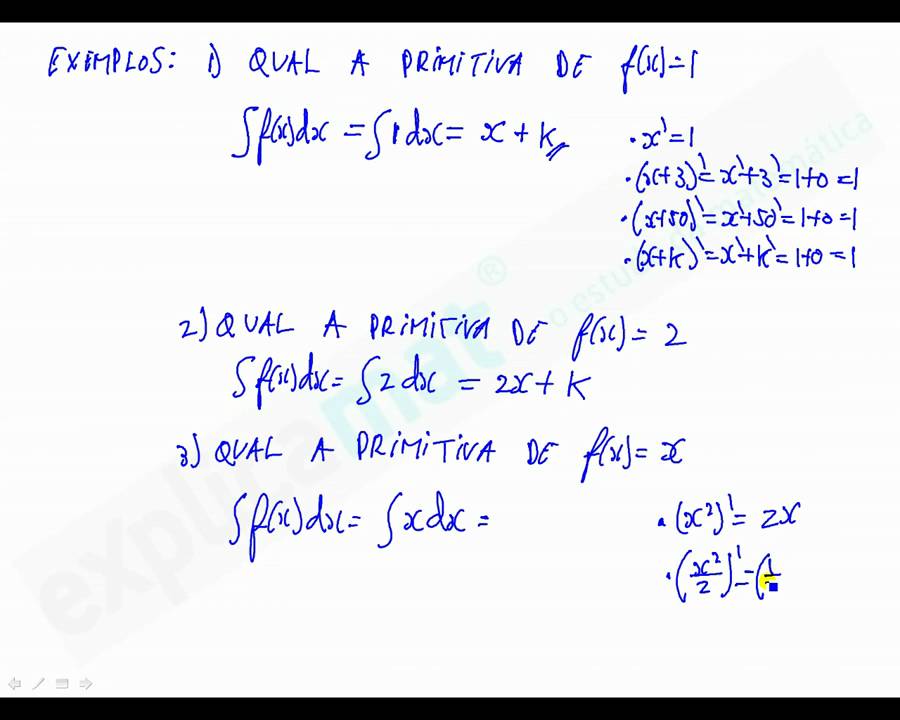 EXEMPLOS: 1) QUAL A PRIMITIVA DE f(x)=1
∫f(x)dx = ∫1dx = x + k
• x' = 1
• (x+3)' = x'+3' = 1+0 = 1
• (x+50)' = x'+50' = 1+0 = 1
• (x+k)' = x'+k' = 1+0 = 1
2) QUAL A PRIMITIVA DE f(x) = 2
∫f(x)dx = ∫2dx = 2x + k
3) QUAL A PRIMITIVA DE f(x) = x
∫f(x)dx = ∫xdx =
• (x²)' = 2x
• (x²/2)' = (1
explicamat®
o estu matemática